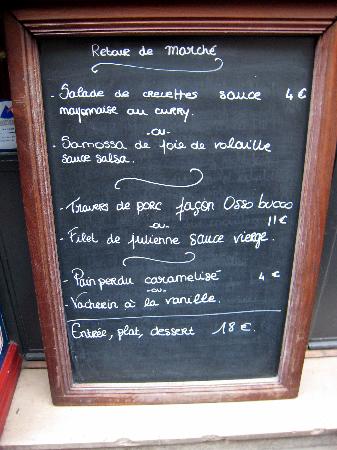 Retour de marché
- Salade de crevettes sauce 4 €
mayonnaise au curry.
-ou-
- Samossa de foie de volaille
sauce salsa.
- Travers de porc façon Osso bucco
-ou- 11 €
- Filet de julienne sauce vierge.
- Pain perdu caramelisé 4 €
-ou-
- Vacherin à la vanille.
Entrée, plat, dessert 18 €.